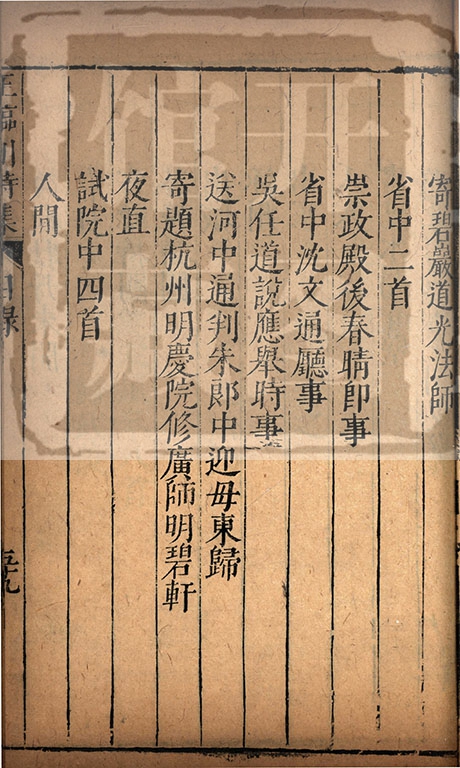 寄碧巖道光法師
省中二首
崇政殿後春晴即事
省中沈文通廳事
吳任道說應舉時事
送河中通判朱郎中迎母東歸
寄題杭州明慶院修廣師明碧軒
夜直
試院中四首
人間
王臨川詩集 目錄
五十九